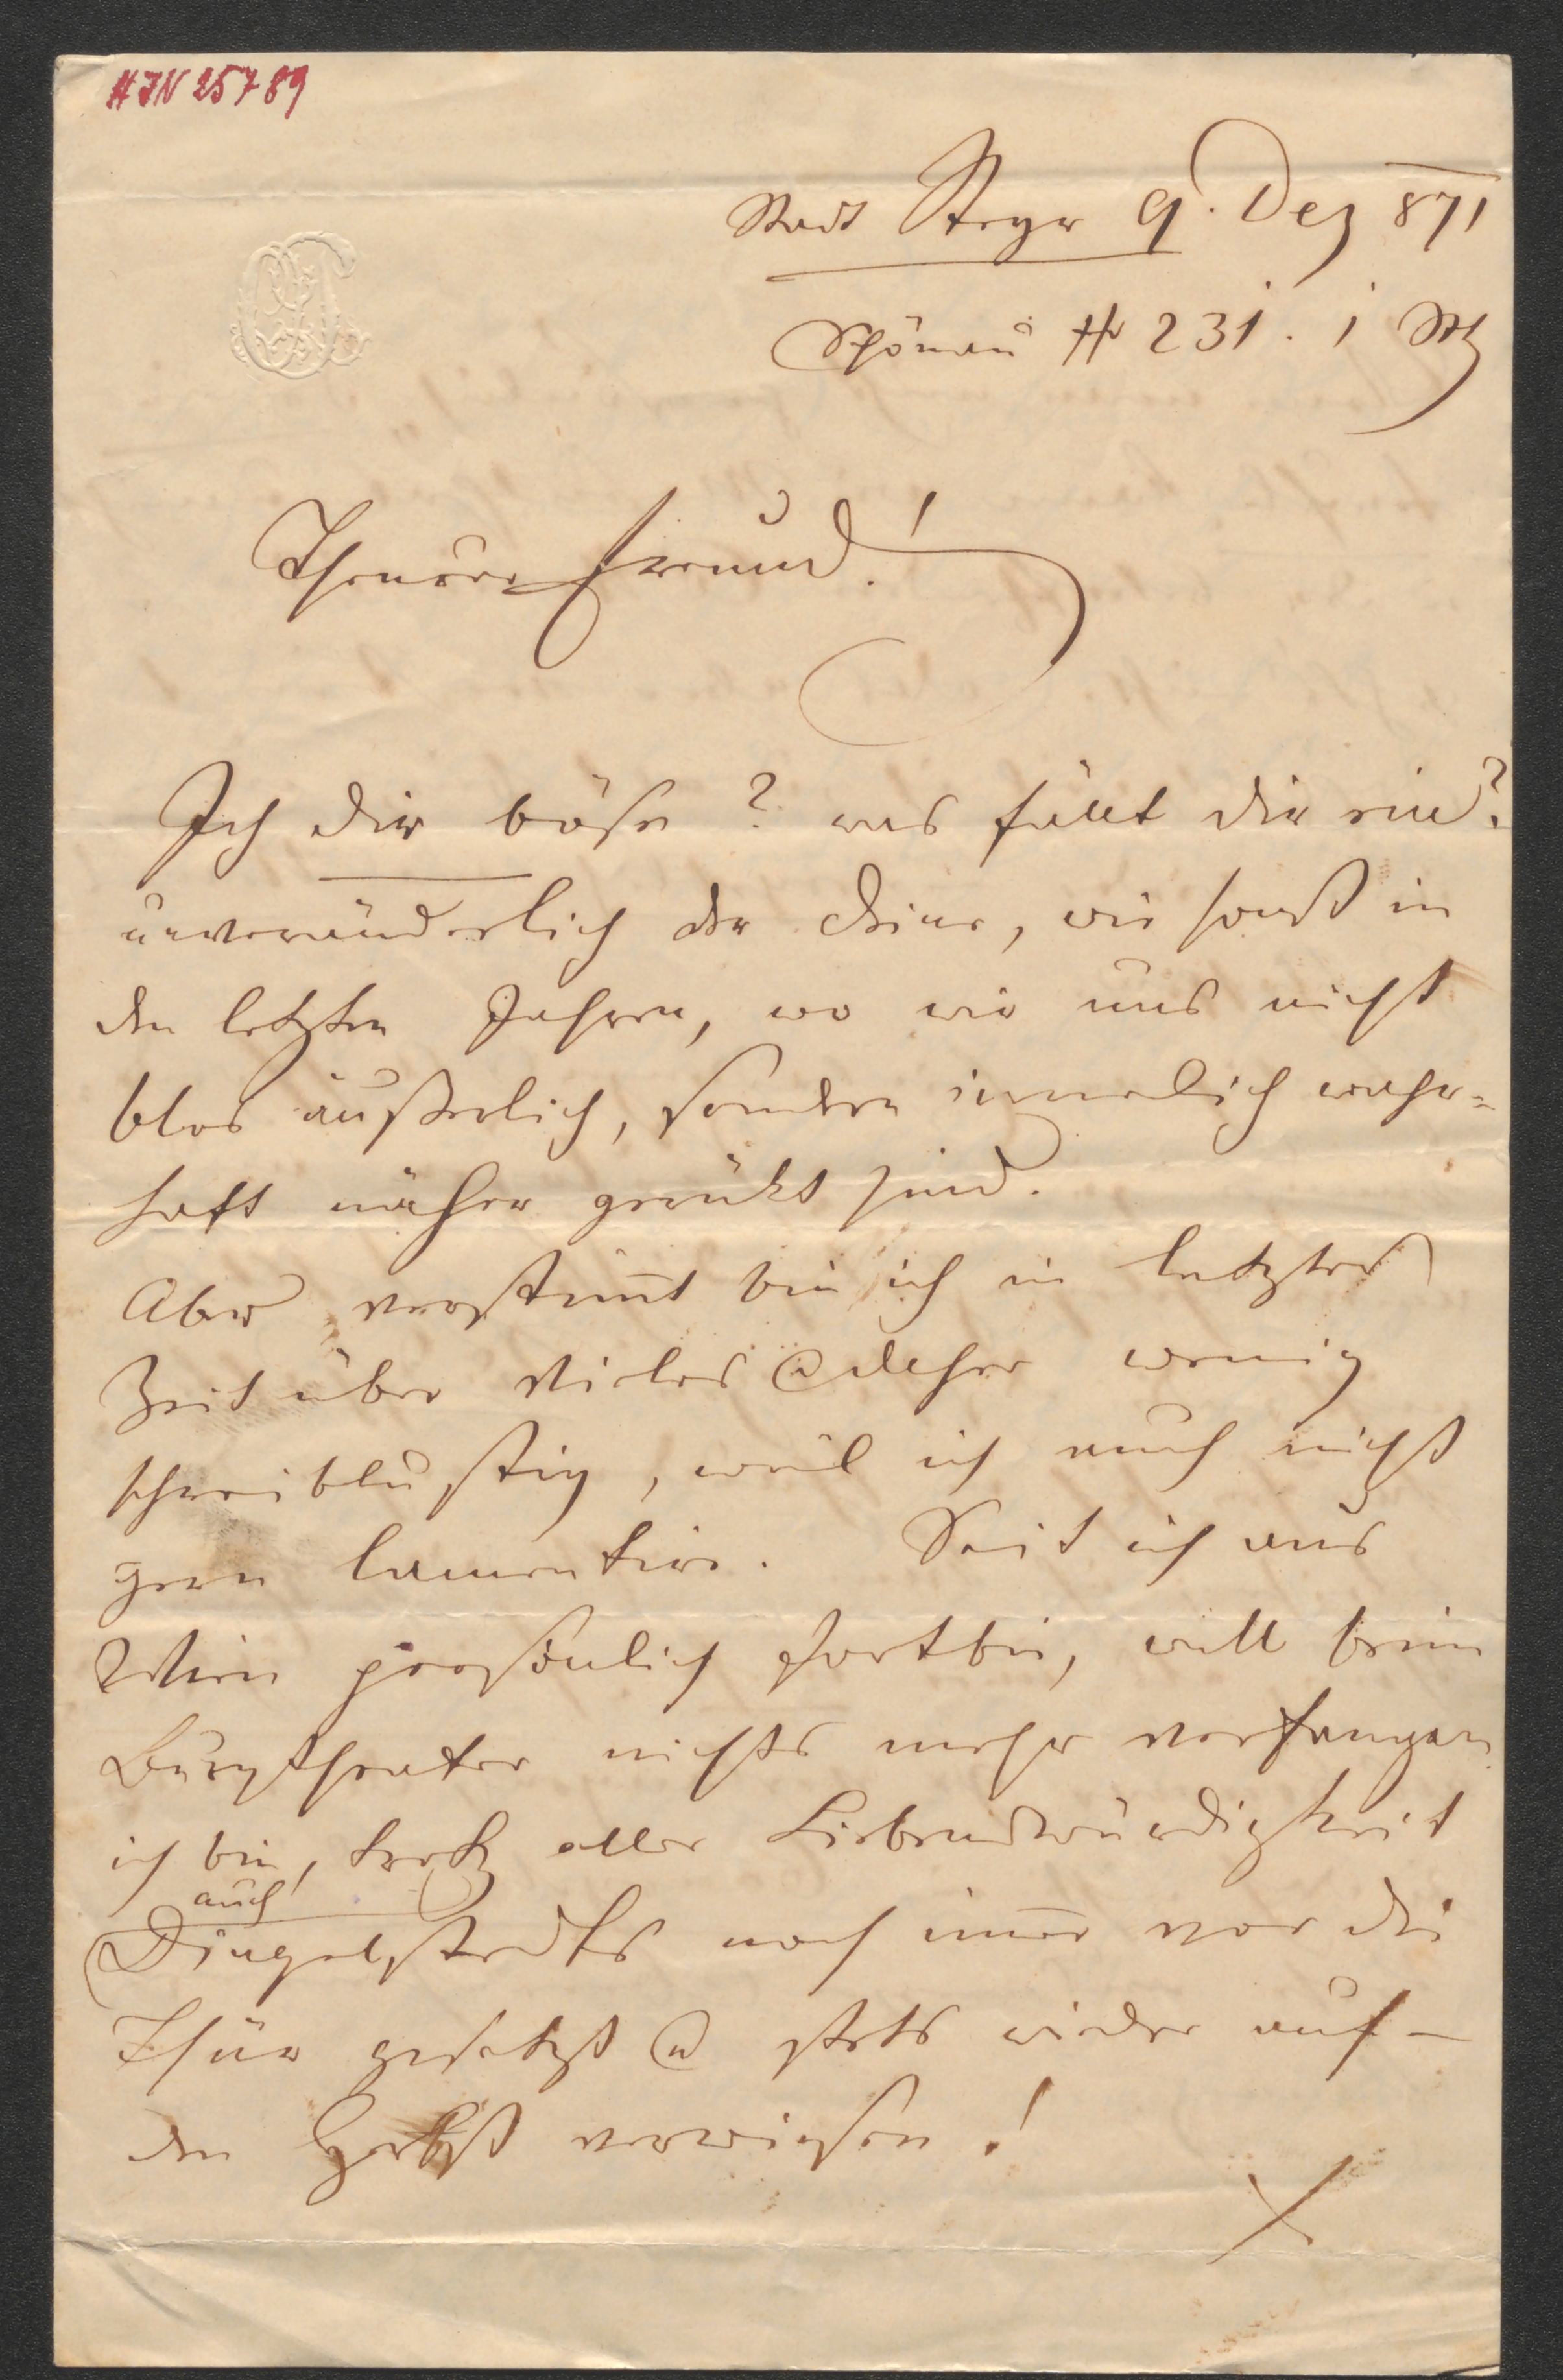 HIN 25789
Stadt Steyr 9. Dez 871
Schönau № 231. 1 Stk
Theurer Freund!
Ich dir böse? was fällt dir ein?
unveränderlich der Deine, wie sonst in
den letzten Jahren, wo wir uns nicht
blos äußerlich, sondern innerlich wahr=
haft näher gerückt sind.
Aber verstimt bin ich in letzter
Zeit über Vieles u daher wenig
schreiblustig, weil ich auch nicht
gern lamentire. Seit ich aus
Wien persönlich fort bin, will beim
Burgtheater nichts mehr verfangen
ich bin, trotz aller Liebenswürdigkeit
auch
Dingelstedts noch imer vor die
Thür gesetzt u stets wieder auf
den Herbst verwiesen!